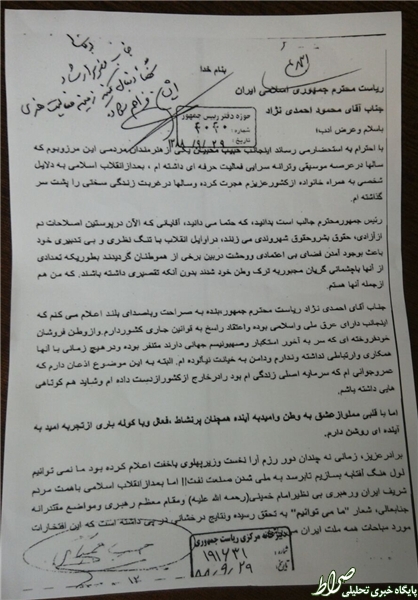 بنام خدا
ریاست محترم جمهوری اسلامی ایران
جناب آقای محمود احمدی نژاد
باسلام وعرض ادب؛
حوزه دفتر رئیس جمهور
شماره:
با احترام به استحضارمی رساند اینجانب حبیب محبیان یکی ازهنرمندان مردمی این مرزوبوم که
سالها درعرصه موسیقی وترانه سرایی فعالیت حرفه ای داشته ام ، بعدازانقلاب اسلامی به دلایل
شخصی به همراه خانواده ازکشورعزیزم هجرت کرده وسالها درغربت زندگی سختی را پشت سر
گذاشته ام.
رئیس جمهورمحترم جالب است بدانید، که حتما می دانید، آقایانی که الآن درپوستین اصلاحات دم
ازآزادی، حقوق بشروحقوق شهروندی می زنند، دراوایل انقلاب با تنگ نظری و بی تدبیری خود
باعث بوجود آمدن فضای بی اعتمادی ووحشت دربین برخی از هموطنان گردیدند بطوریکه تعدادی
از آنها باچشمانی گریان مجبوربه ترک وطن خود شدند بدون آنکه تقصیری داشته باشند. که من هم
ازجمله آنها هستم.
جناب آقای احمدی نژاد ریاست محترم جمهور؛بنده به صراحت وباصدای بلند اعلام می کنم که
اینجانب دارای عرق ملی واسلامی بوده واعتقاد راسخ به قوانین جاری کشوردارم وازوطن فروشان
خودفروخته ای که سر به آخور استکبار وصهیونیسم جهانی دارند متنفر بوده ودر هیچ زمانی با آنها
همکاری وارتباطی نداشته وندارم ودامن به خیانت نیالوده ام. البته به این موضوع اذعان دارم که
عمروجوانی ام که سرمایه اصلی زندگی ام بود رادرخارج ازکشورازدست داده ام وشاید هم کوتاهی
هایی داشته باشم.
اما با قلبی مملوازعشق به وطن وامیدبه آینده همچنان پرنشاط، فعال وبا کوله باری ازتجربه امید به
آینده ای روشن دارم.
برادرعزیز، زمانی نه چندان دور رزم آرا نخست وزیرپهلوی باخفت اعلام کرده بود ما نمی توانیم
لول هنگ آفتابه بسازیم تابرسد به ملی شدن صنعت نفت!! اما بعدازانقلاب اسلامی باهمت مردم
شریف ایران ورهبری بی نظیرامام خمینی(رحمه الله علیه) ومقام معظم رهبری ومواضع مقتدرانه
جنابعالی، شعار "ما می توانیم" به تحقق رسیده ونتایج درخشانی در پی داشته است که این افتخارات
مورد مباحات همه ملت ایران
دبیرخانه مرکزی ریاست جمهوری
۱۹۱۶۳۱
۸۸-۹-۲۹
صراط
پایگاه خبری تحلیلی